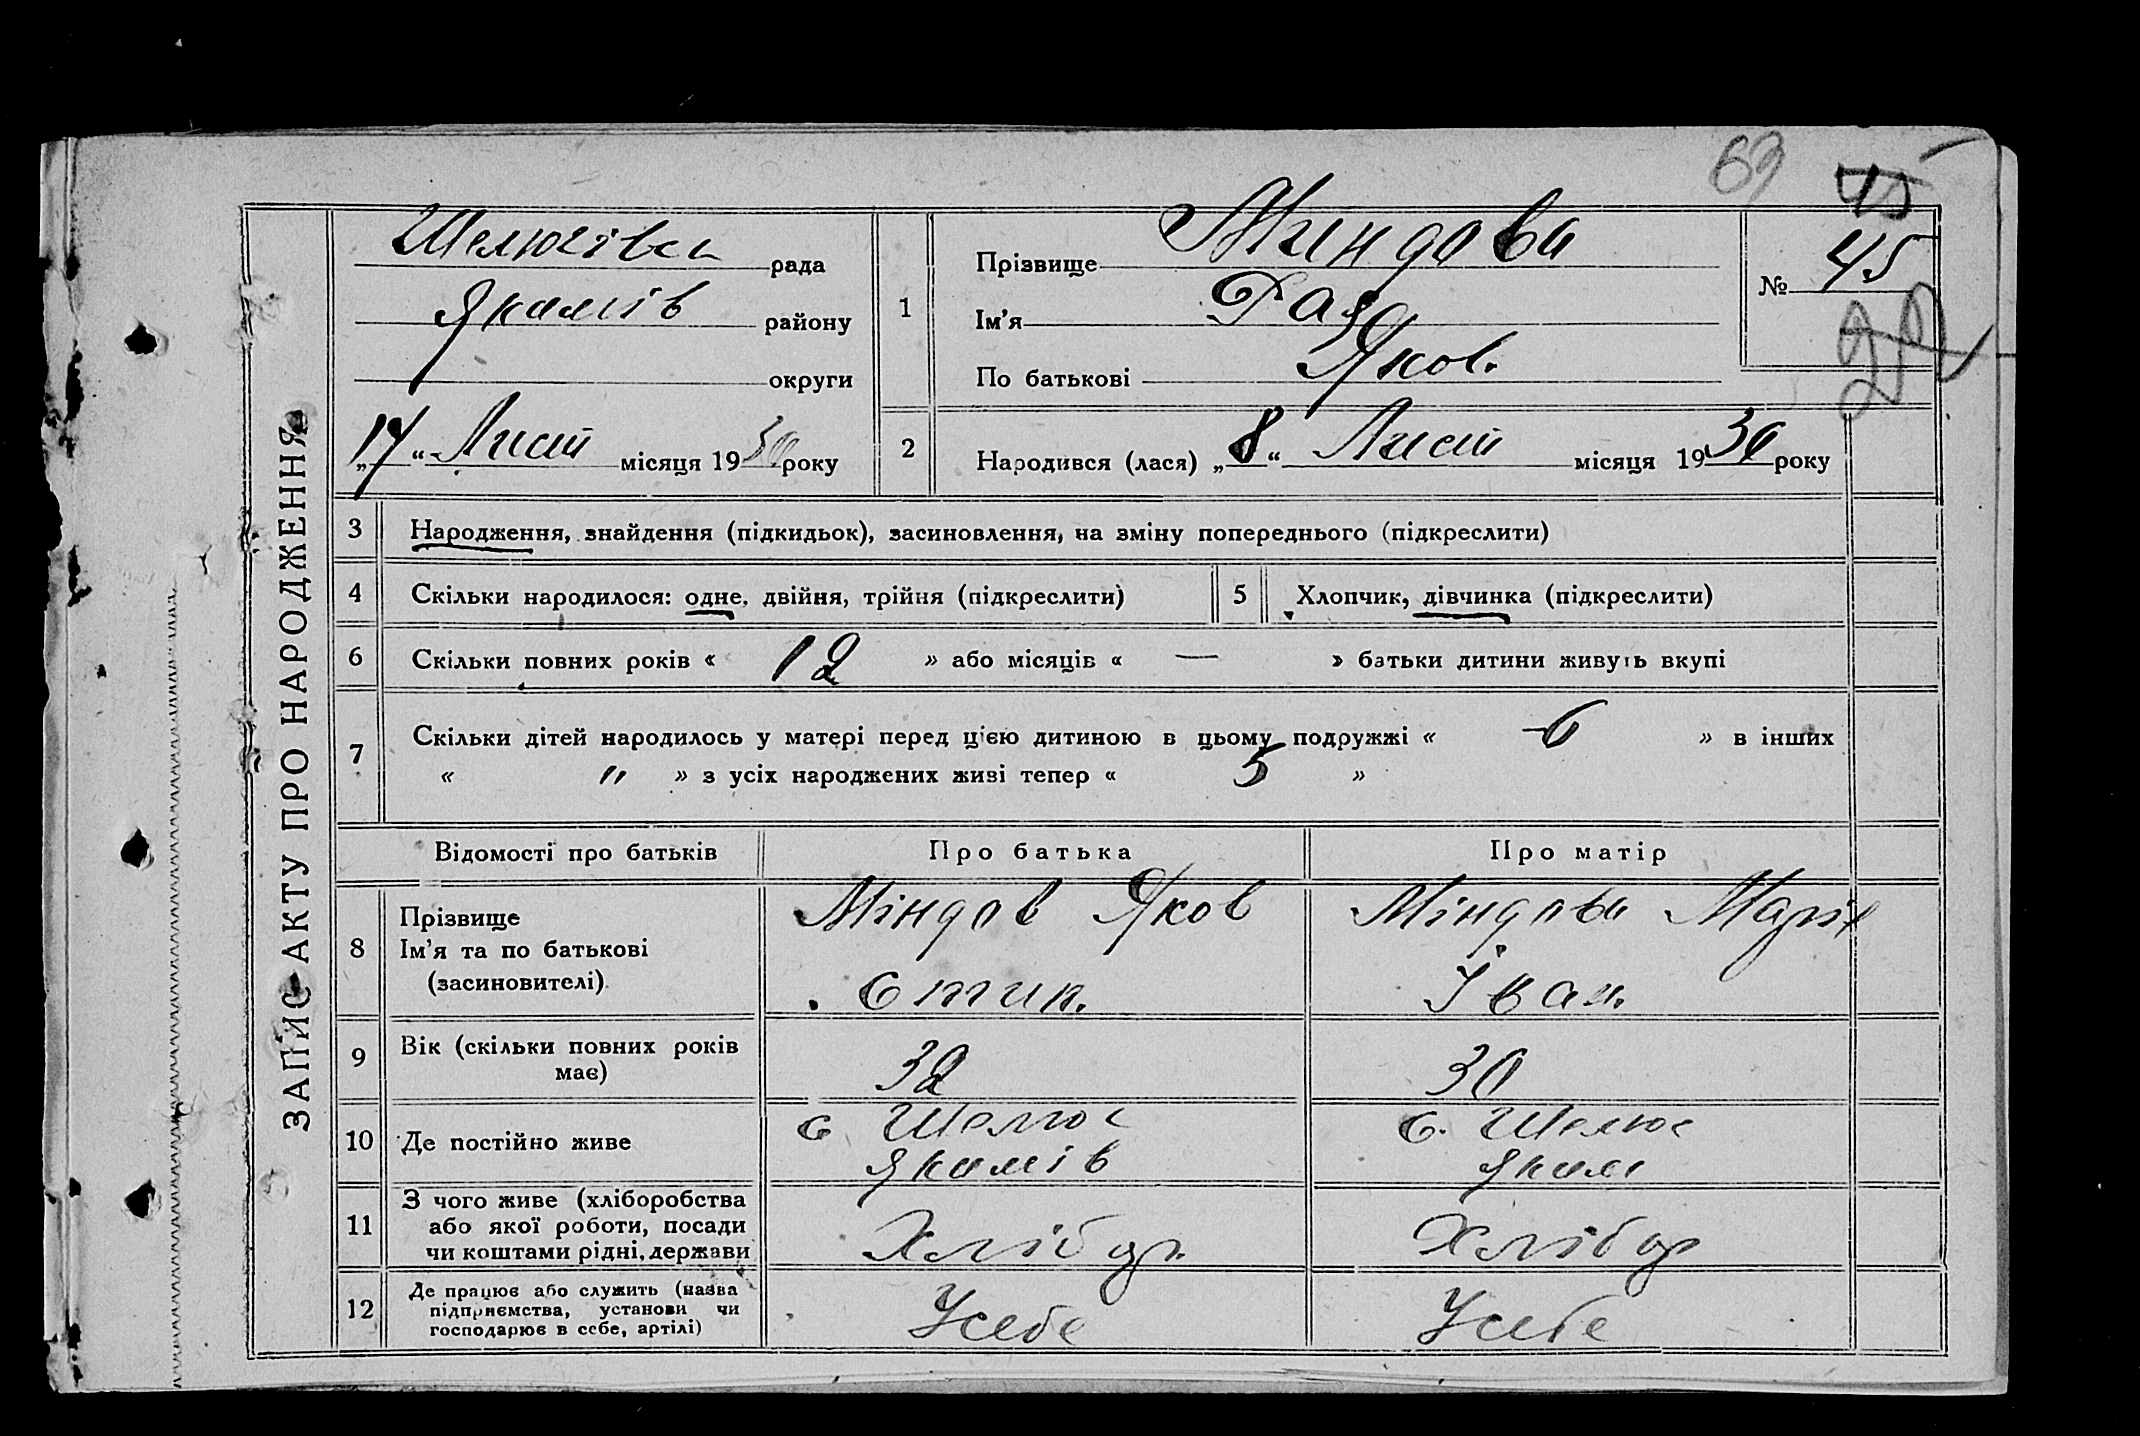 63 45
ЗАПИС АКТУ ПРО НАРОДЖЕННЯ
Шелюгівсь рада
Якимів району
округи
„17“ Лист місяця 1930 року
1
Прізвище Миндова
Ім’я Рая
По батькові Яков.
№ 45
22
2 Народився (лася) „8“ Лист місяця 1930 року
3 Народження, знайдення (підкидьок), засиновлення, на зміну попереднього (підкреслити)
4 Скільки народилося: одне, двійня, трійня (підкреслити) 5 Хлопчик, дівчинка (підкреслити)
6 Скільки повних років « 12 » або місяців « — » батьки дитини живуть вкупі
7 Скільки дітей народилось у матері перед цією дитиною в цьому подружжі « 6 » в інших
« " » з усіх народжених живі тепер « 5 »
Відомості про батьків Про батька Про матір
8 Прізвище
Ім’я та по батькові
(засиновителі)
Міндов Яков
Степ.
Міндова Марія
Іван.
9 Вік (скільки повних років
має)
32 30
10 Де постійно живе
с Шелюг
Якимів
с. Шелюг
Яким
11 З чого живе (хліборобства
або якої роботи, посади
чи коштами рідні, держави
Хлібор. Хлібор
12 Де працює або служить (назва
підприємства, установи чи
господарює в себе, артілі)
Усебе Усебе